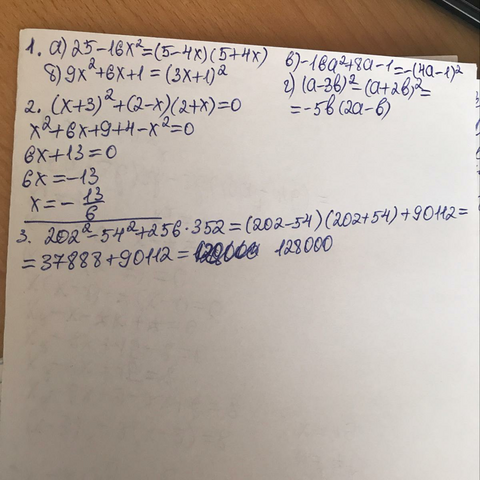 1. а) 25-16x²=(5-4x)(5+4x)
б) 9x²+6x+1=(3x+1)²
в) -16a²+8a-1=-(4a-1)²
г) (a-3b)²=(a+2b)²=
=-5b(2a-b)
2. (x+3)²+(2-x)(2+x)=0
x²+6x+9+4-x²=0
6x+13=0
6x=-13
x=-13/6
3. 202²-54²+256·352=(202-54)(202+54)+90112=
=37888+90112= 128000